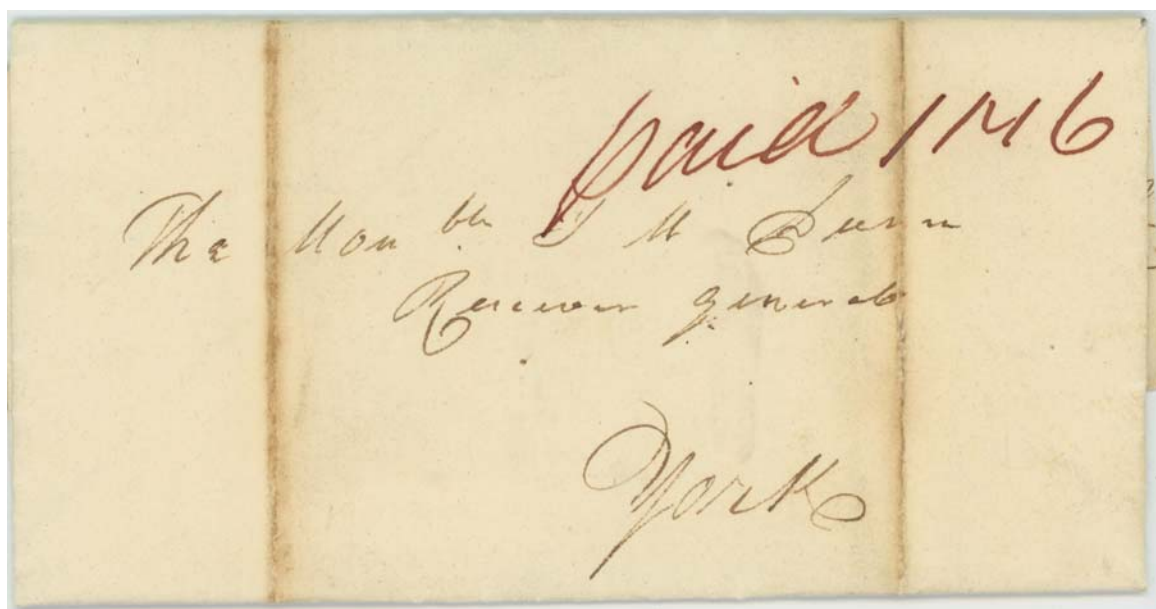 Paid 1N6
The Honble J H Dunn
Receiver General
York